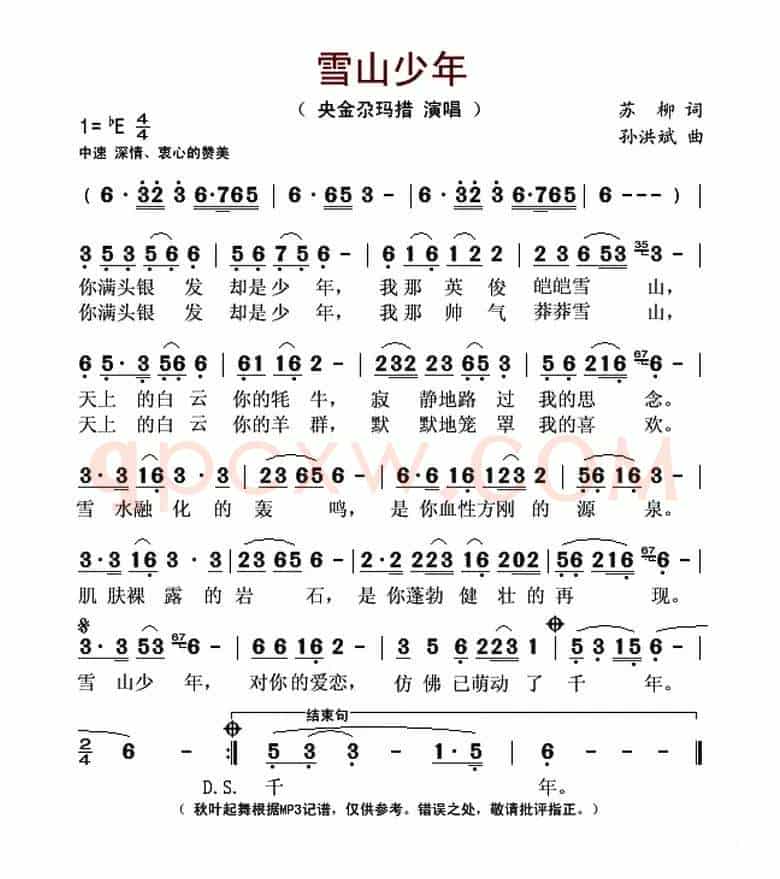 雪山少年
（ 央金尕玛措 演唱 ）
苏 柳 词
1= ♭E 4/4
孙洪斌 曲
中速 深情、衷心的赞美
( 6 · 32 3 6·765 | 6 · 65 3 - | 6 · 32 3 6·765 | 6 - - - ) |
3 5 3 5 6 6 | 5 6 7 5 6 - | 6 1 6 1 2 2 | 2 3 6 53 35 3 - |
你满头银 发 却是少 年， 我那 英 俊 皑皑雪 山，
你满头银 发 却是少 年， 我那 帅 气 莽莽雪 山，
6 5 · 3 56 6 | 61 16 2 - | 232 323 65 3 | 5 6 216 67 6 - |
天上 的白云 你的牦 牛， 寂 静地路 过 我的思 念。
天上 的白云 你的羊 群， 默 默地笼 罩 我的喜 欢。
qpcxw.com
3 · 3 16 3 · 3 | 23 65 6 - | 6·6 16 123 2 | 56 16 3 - |
雪 水融 化 的 轰 鸣， 是 你血性方刚 的 源 泉。
3 · 3 16 3 · 3 | 23 65 6 - | 2·2 223 16 202 | 56 216 67 6 - |
肌 肤裸 露 的 岩 石， 是 你蓬勃 健 壮 的 再 现。
3 · 3 53 67 6 - | 6 6 16 2 - | 3 5 6 223 1 | 5 3 15 6 - |
雪 山少 年， 对你 的爱恋， 仿 佛 已萌动 了 千 年。
结束句
2/4 6 - :| 5 3 3 - | 1 · 5 | 6 - - |
D.S. 千 年。
（ 秋叶起舞根据MP3记谱，仅供参考。错误之处，敬请批评指正。）